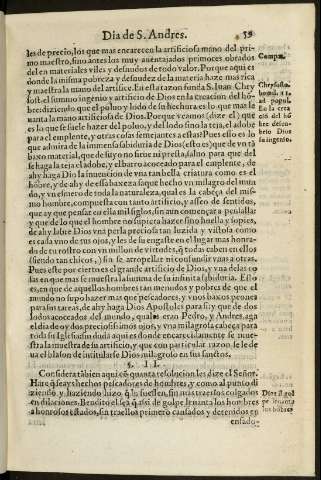 Dia de S. Andres.
59
les de precio, los que mas encarecen la artificiosa mano del pri-
mo maestro, sino antes los muy auentajados primores obrados
del en materiales viles y desnudos de todo valor. Porque aqui es
donde la misma pobreza y desnudez de la materia haze mas rica
y maestra la mano del artifice. En esta tazon funda S. Juan Chry
sost. el summo ingenio y artificio de Dios en la creacion del hõ-
bre: diziendo, que el poluo y lodo de su hechura es lo que mas le
uanta la mano artificiosa de Dios. Por que veamos (dize el) que
es lo que se suele hazer del poluo, y del lodo sino la teja, el adobe
para el emplente, y otras cosas semejantes a estas? Pues esso es lo
que admira de la immensa sabiduria de Dios (esto es) que de vn ta
baxo material, que de suyo no sirue ni presta, saluo para que del
se haga la teja o el adobe, y el barro acoceado para el
ahy haga Dio la inuencion de vna tan bella criatura como es el
hõbre, y de ahy de essa baxeza saque hecho vn milagro del mun
do, y vn esmero de toda la naturaleza, qual es la cabeça del mis-
mo hombre, compuesta con tanto artificio, y asseo de sentidos,
que ay que pensar en ella mil siglos, sin aun començar a penetralla:
y que de lo que el hombre no supiera hazer sino huellas y sopies,
de ahy labre Dios vna perla preciosa tan luzida y vistosa como
es cada vno de sus ojos, y les de su engaste en el lugar mas honra-
do de tu rostro con vn millon de virtudes, q̃ todas caben en ellos
(siendo tan chicos,) sin se atropellar ni confundir vnas a otras.
Pues este por cierto es el grande artificio de Dios, y vna de las co
sas en que mas se muestra la summa de su infinita sabiduria. Esto
es, en que de aquellos hombres tan menudos y pobres de que el
mundo no supo hazer mas que pescadores, y vnos baxos peones
para sus tareas, de ahy haga Dios Apostoles para si: y que de dos
lodos acoceados del mundo, quales eran Pedro, y Andres, haga
el dia de oy dos preciosissimos ojos, y vna milagrosa cabeça para
toda su Iglesia: sin duda aqui es donde encarecidamente se mue-
stra la muestra de su artificio, y que con particular razon le le de
ua el blason de intitularse Dios milagroso en sus sanctos.
§. II.
Considera tãbien aqui cõ quanta resolucion les dize el Señor.
Hare q̃ seays hechos pescadores de hombres, y como al punto di
ziendo y haziendo hizo q̃ lo fuessen, sin mas traerlos colgados
en dilaciones. Bendito el sea q̃ assi de golpe leuanta los hombres
a honrosos estados, sin traellos primero cansados y detenidos en
ensado-
Compa.
Chrysosto.
homil.
ad popul.
En la crea
ciõ del hõ
bre descu-
brio Dios
su ingenio.
Dios de gol
pe leuanta
los hõbres